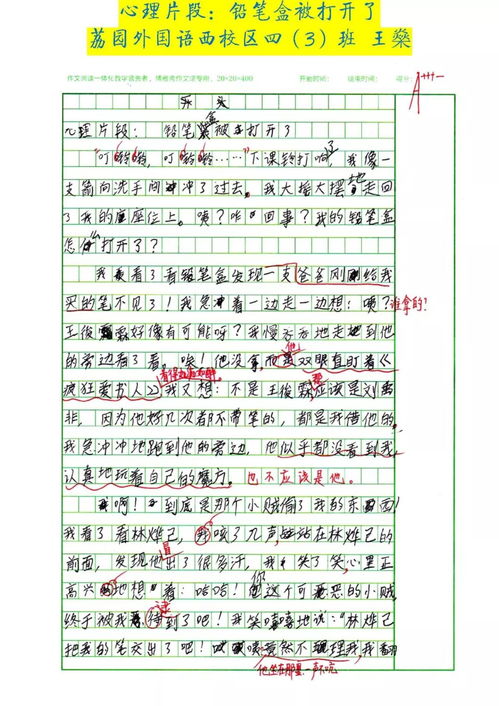 心理片段：铅笔盒被打开了
荔园外国语西校区四（3）班 王燊
20×20=400
开始时间：
结束时间：
得分：
A++++
心理片段：铅笔盒被打开了
“叮铃铃，叮铃铃……”下课铃打响了，我像一
支箭向洗手间冲了过去。我大摇大摆地走回
了我的座位上。咦？咋回事？我的铅笔盒
怎么打开了？
我看了看铅笔盒发现一支爸爸刚刚给我
买的笔不见了！我急冲着一边走一边想：咦？谁拿的？
王俊霖好像有可能呀？我慢吞吞地走到他
的旁边看了看。唉！他没拿，他双眼直盯着《
看得
疯狂爱书人》我又想：不是王俊霖那应该是刘
非，因为他好几次都不带笔的，都是我借他的。
我急冲冲地跑到他的旁边，他似乎都没看到我，
认真地玩着自己的魔方。也不应该是他。
我啊！到底是那个小贼偷了我的东西！
我看了看林烨己，我咳了几声站在林烨己的
前面，发现他冒出了很多汗，我笑了笑心里正
高兴地想着：哈哈！你这个可恶的小贼
终于被我逮到了吧！我笑嘻嘻地说：“林烨己
把我的笔交出了吧！竟然不理我，我翻
他坐在那里一声不吭